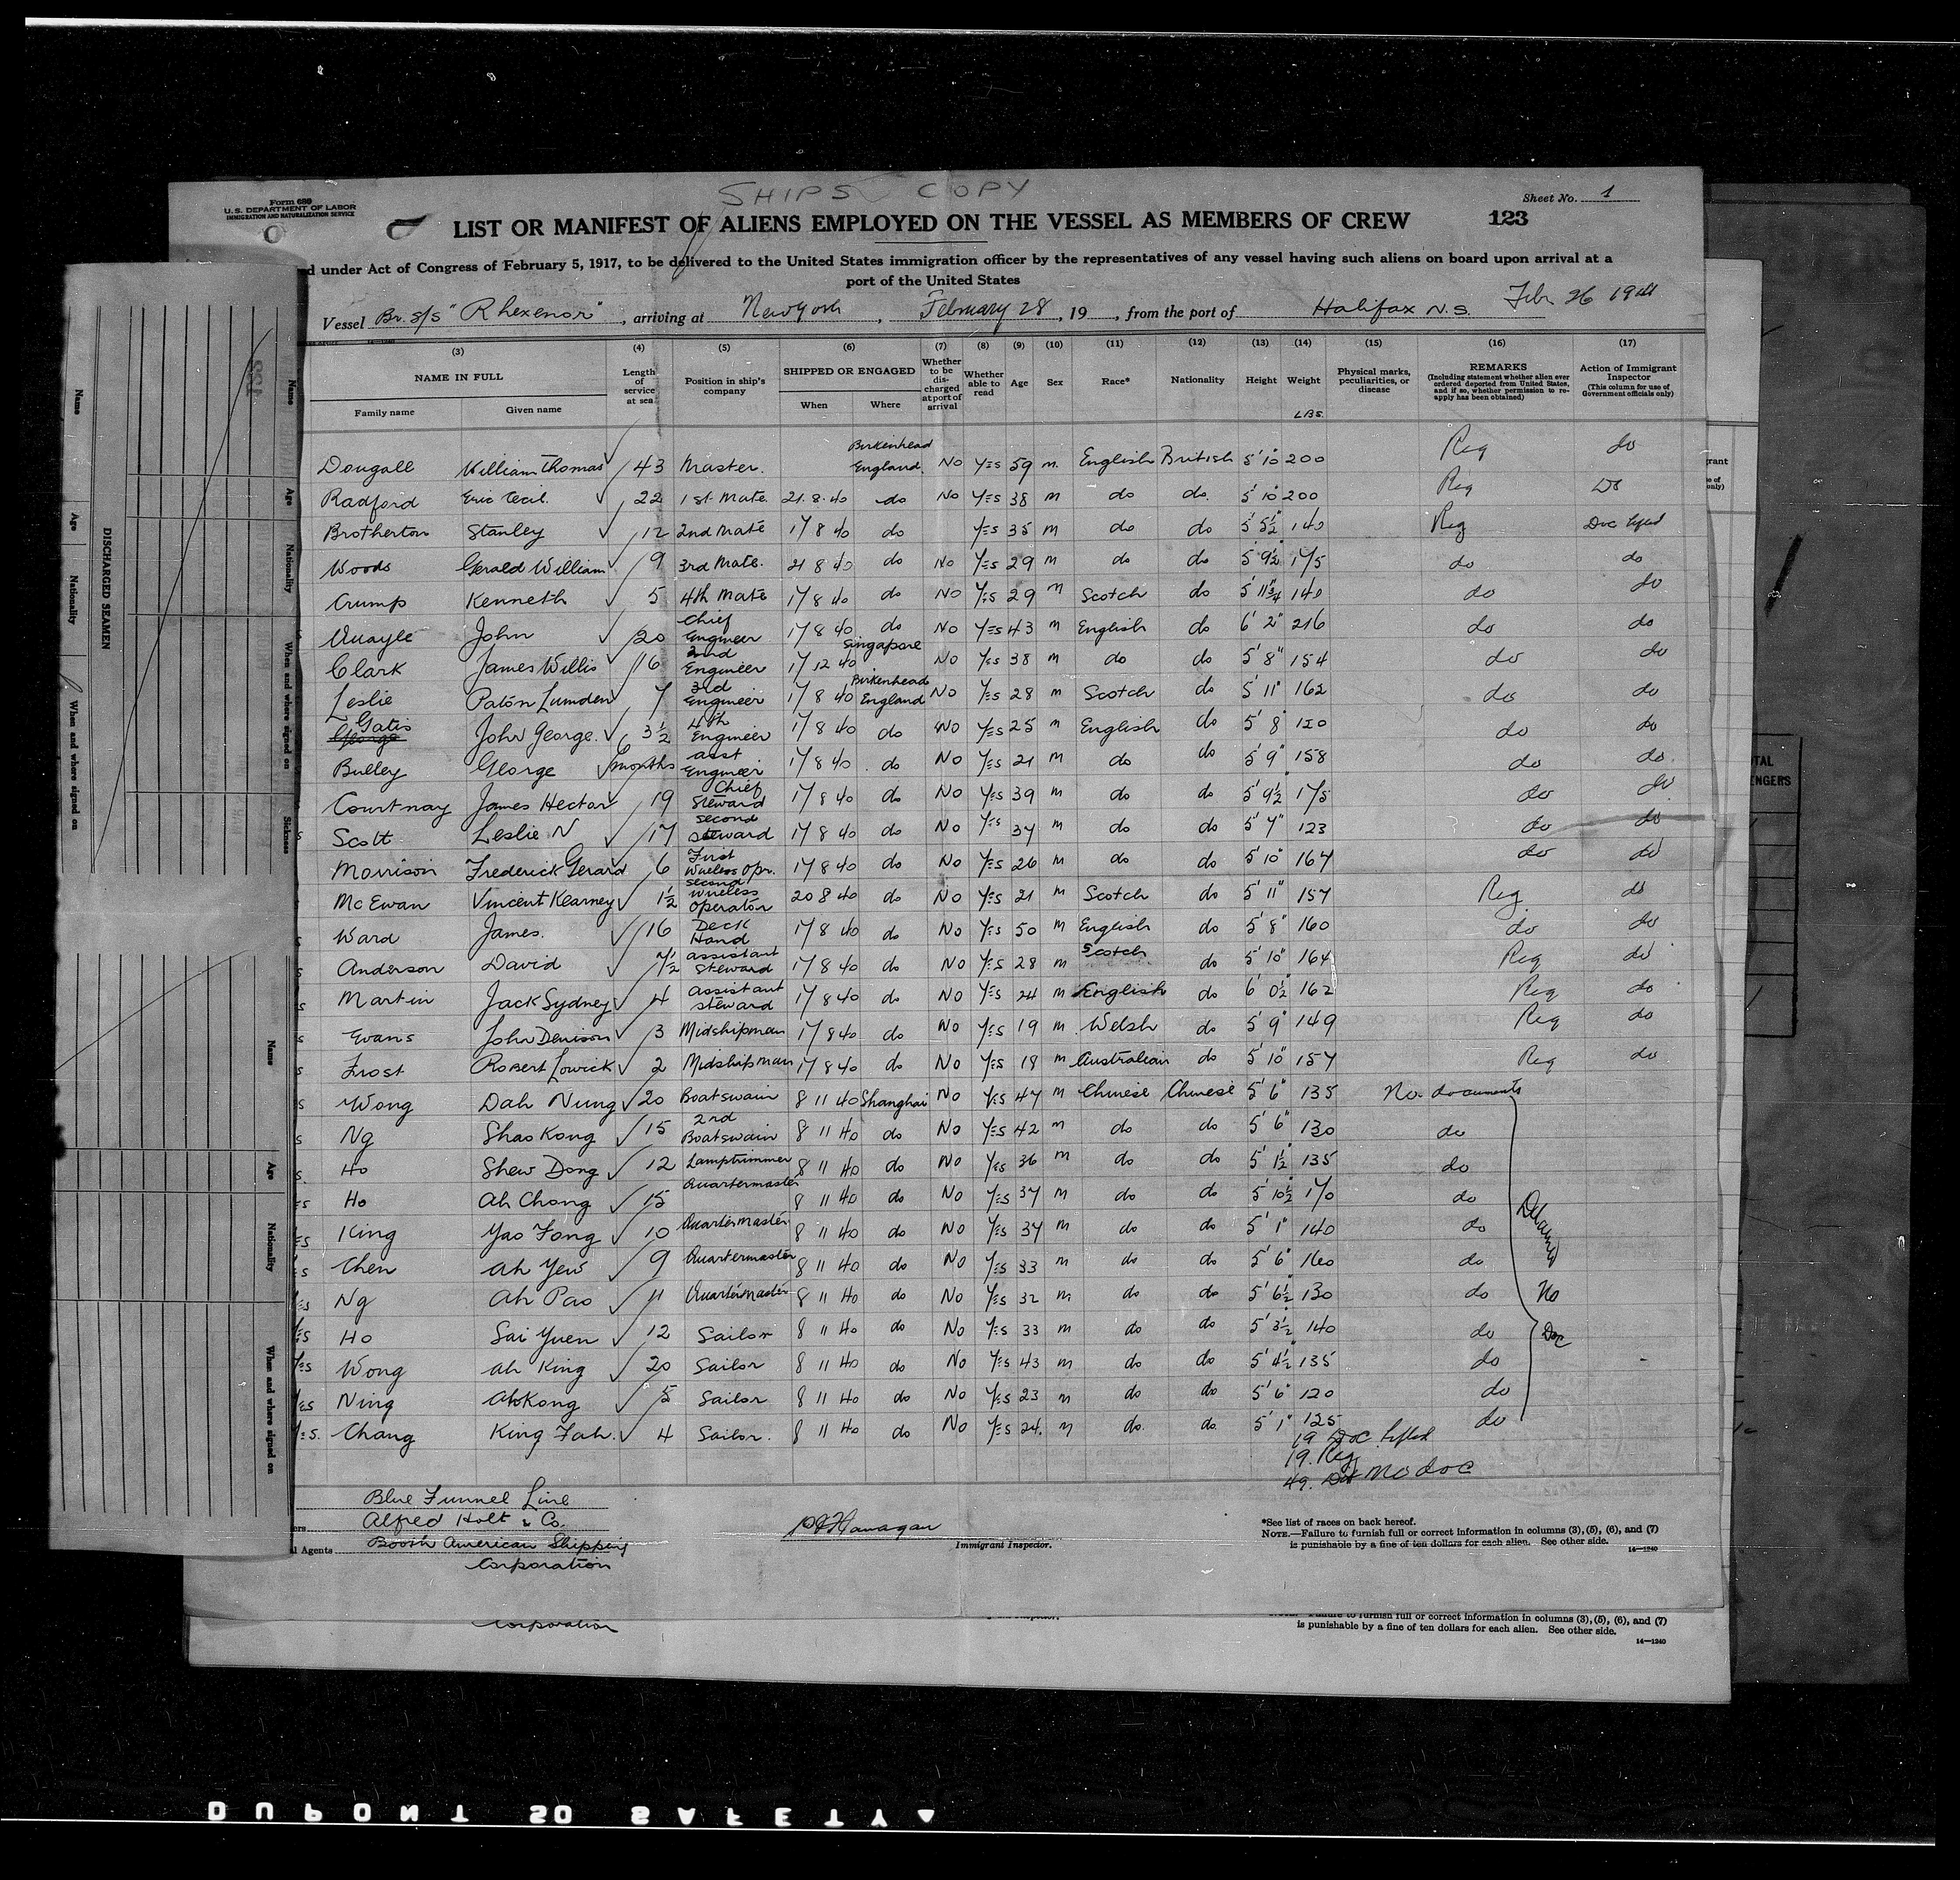 SHIPS COPY
Form 689
U.S. DEPARTMENT OF LABOR
IMMIGRATION AND NATURALIZATION SERVICE
Sheet No. 1
LIST OR MANIFEST OF ALIENS EMPLOYED ON THE VESSEL AS MEMBERS OF CREW
123
d under Act of Congress of February 5, 1917, to be delivered to the United States immigration officer by the representatives of any vessel having such aliens on board upon arrival at a
port of the United States
Vessel Br. S/S "Rhexenor", arriving at New York, February 28, 19, from the port of Halifax N.S. Feb. 26 1941
(3) (4) (5) (6) (7) (8) (9) (10) (11) (12) (13) (14) (15) (16) (17)
NAME IN FULL Family name Given name
Length of service at sea
Position in ship's company
SHIPPED OR ENGAGED When Where
Whether to be discharged at port of arrival
Whether able to read
Age
Sex
Race*
Nationality
Height
Weight
LBS.
Physical marks, peculiarities, or disease
REMARKS
(Including statement whether alien ever ordered deported from United States, and if so, whether permission to reapply has been obtained)
Action of Immigrant Inspector
(This column for use of Government officials only)
Dougall William Thomas 43 Master. Birkenhead England. No Yes 59 m. English British 5' 10" 200 Reg do
Radford Eric Cecil. 22 1st Mate. 21.8.40 do No Yes 38 m do do. 5' 10" 200 Reg
Brotherton Stanley 12 2nd Mate 17 8 40 do Yes 35 m do do 5' 5½" 140 Reg Doc lifted
Woods Gerald William 9 3rd Mate. 21 8 40 do No Yes 29 m do do 5' 9½" 175 do do
Crump Kenneth 5 4th Mate 17 8 40 do No Yes 29 m Scotch do 5' 11¾" 140 do do
Quayle John 20 Chief Engineer 17 8 40 do No Yes 43 m English do 6' 2" 216 do do
Clark James Willis 16 2nd Engineer 17 12 40 Singapore No Yes 38 m do do 5' 8" 154 do do
Leslie Paton Lumden 7 3rd Engineer 17 8 40 Birkenhead England No Yes 28 m Scotch do 5' 11" 162 do do
Gatis George John George. 3½ 4th Engineer 17 8 40 do No Yes 25 m English do 5' 8" 120 do do
Bulley George 6 months asst Engineer 17 8 40 do No Yes 21 m do do 5' 9" 158 do do.
Courtnay James Hector 19 Chief Steward 17 8 40 do No Yes 39 m do do 5' 9½" 175 do do
Scott Leslie N 17 second steward 17 8 40 do No Yes 37 m do do 5' 7" 123 do do
Morrison Frederick Gerard 6 First Wireless Opr. 17 8 40 do No Yes 26 m do do 5' 10" 167 do do
McEwan Vincent Kearney 1½ second wireless operator 20 8 40 do No Yes 21 m Scotch do 5' 11" 157 Reg. do
Ward James. 16 Deck Hand 17 8 40 do No Yes 50 m English do 5' 8" 160 do do
Anderson David 7½ assistant steward 17 8 40 do No Yes 28 m Scotch do 5' 10" 164 Reg do
Martin Jack Sydney 4 assistant steward 17 8 40 do No Yes 24 m English do 6' 0½" 162 Reg do
Evans John Denison 3 Midshipman 17 8 40 do No Yes 19 m Welsh do 5' 9" 149 Reg do
Frost Robert Lowick 2 Midshipman 17 8 40 do No Yes 18 m Australian do 5' 10" 157 Reg do
Wong Dah Nung 20 Boatswain 8 11 40 Shanghai No Yes 47 m Chinese Chinese 5' 6" 135 No. documents
Ng Shao Kong 15 2nd Boatswain 8 11 40 do No Yes 42 m do do 5' 6" 130 do
Ho Shew Dong 12 Lamptrimmer 8 11 40 do No Yes 36 m do do 5' 1½" 135 do
Ho Ah Chong 15 Quartermaster 8 11 40 do No Yes 37 m do do 5' 10½" 170 do
King Yao Fong 10 Quartermaster 8 11 40 do No Yes 37 m do do 5' 1" 140 do
Chen Ah Yew 9 Quartermaster 8 11 40 do No Yes 33 m do do 5' 6" 160 do
Ng Ah Pao 11 Quartermaster 8 11 40 do No Yes 32 m do do 5' 6½" 130 do
Ho Sai Yuen 12 Sailor 8 11 40 do No Yes 33 m do do 5' 3½" 140 do
Wong Ah King 20 Sailor 8 11 40 do No Yes 43 m do do 5' 4½" 135 do
Ning Ah Kong 5 Sailor 8 11 40 do No Yes 23 m do do 5' 6" 120 do
Chang King Fah. 4 Sailor. 8 11 40 do No Yes 24. m do. do. 5' 1" 125 do
Detained
No
Doc
19 Doc lifted
19. Reg
49. no doc
Blue Funnel Line
Alfred Holt & Co.
l Agents Booth American Shipping
Corporation
Immigrant Inspector.
*See list of races on back hereof.
NOTE.—Failure to furnish full or correct information in columns (3), (5), (6), and (7)
is punishable by a fine of ten dollars for each alien. See other side.
14—1240
Corporation
Failure to furnish full or correct information in columns (3), (5), (6), and (7)
is punishable by a fine of ten dollars for each alien. See other side.
14—1240
DISCHARGED SEAMEN
Name Age Nationality When and where signed on
Name Age Nationality When and where signed on Sickness
Name Age Nationality When and where signed on
DUPONT SO SAFETY